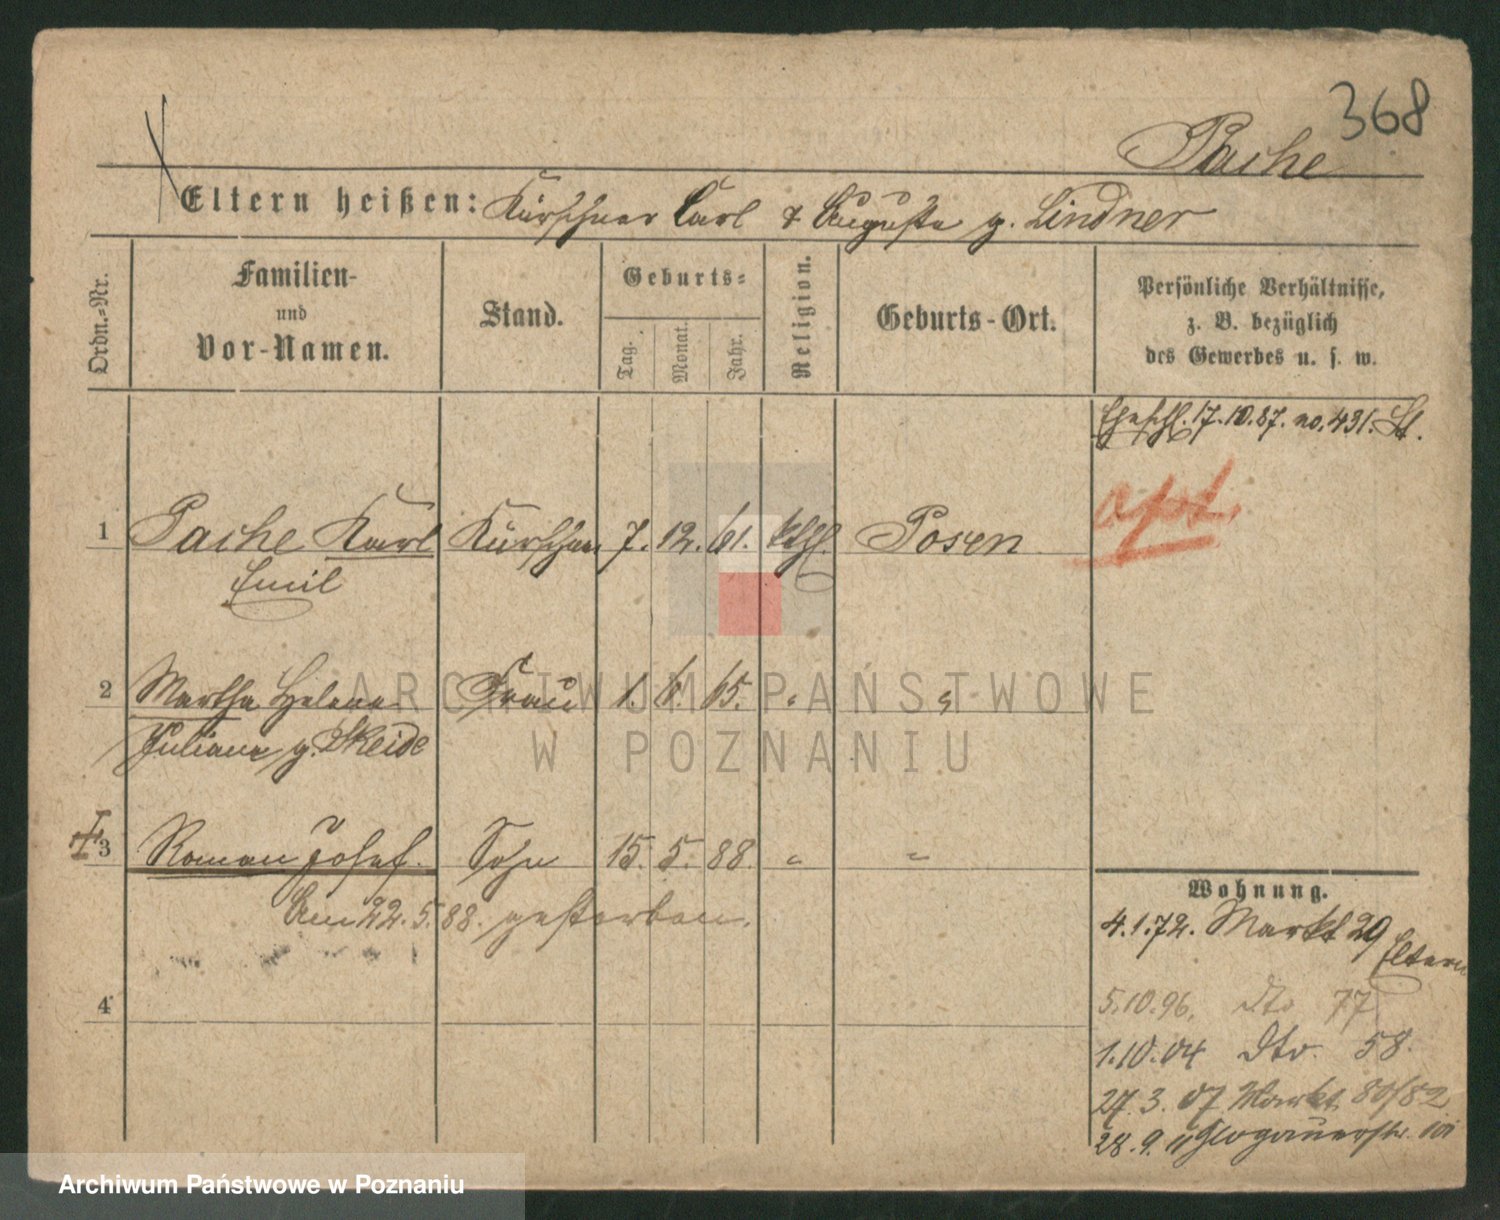 368
Pache
Eltern heißen: Kürschner Carl & Auguste g. Lindner
Ordn.-Nr.
Familien- und Vor-Namen.
Stand.
Geburts-
Tag.
Monat.
Jahr.
Religion.
Geburts-Ort.
Persönliche Verhältnisse,
z. B. bezüglich
des Gewerbes u. s. w.
Eheschl. 17.10.87. no. 431. St.
1 Pache Karl Kürschner 7. 12. 61. kthl. Posen
Emil
opt.
2 Martha Helene Frau 1. 6. 65. " "
Juliane g. Skeide
3 Roman Josef. Sohn 15. 5. 88. " "
Am 22.5.88. gestorben.
4
Wohnung.
4.1.72. Markt 29
Eltern
5.10.96. dto 77
1.10.04 dto. 58.
27.3.07 Markt 80/82
28.9.11 Glogauerstr.
ARCHIWUM PAŃSTWOWE
W POZNANIU
Archiwum Państwowe w Poznaniu